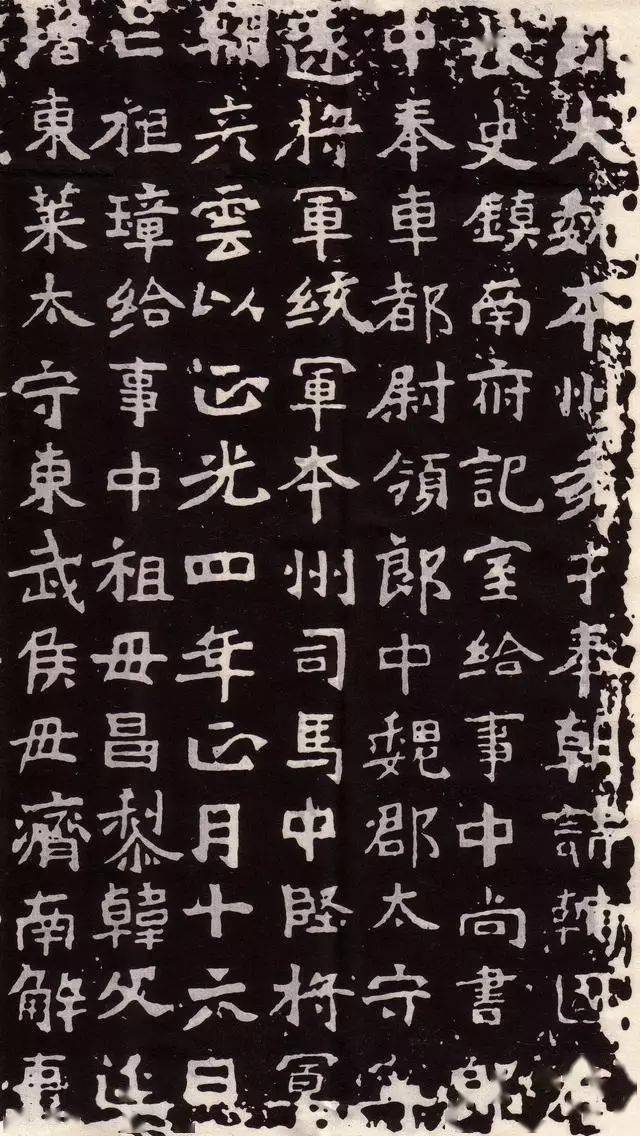 大魏本州秀才奉朝請輔國
長史鎮南府記室給事中尚書郎
中奉車都尉領郎中魏郡太守
遠將軍統軍本州司馬中堅將軍
彦雲以正光四年正月十六日
亡祖璋給事中祖母昌黎韓父延
增東萊太守東武侯母濟南解